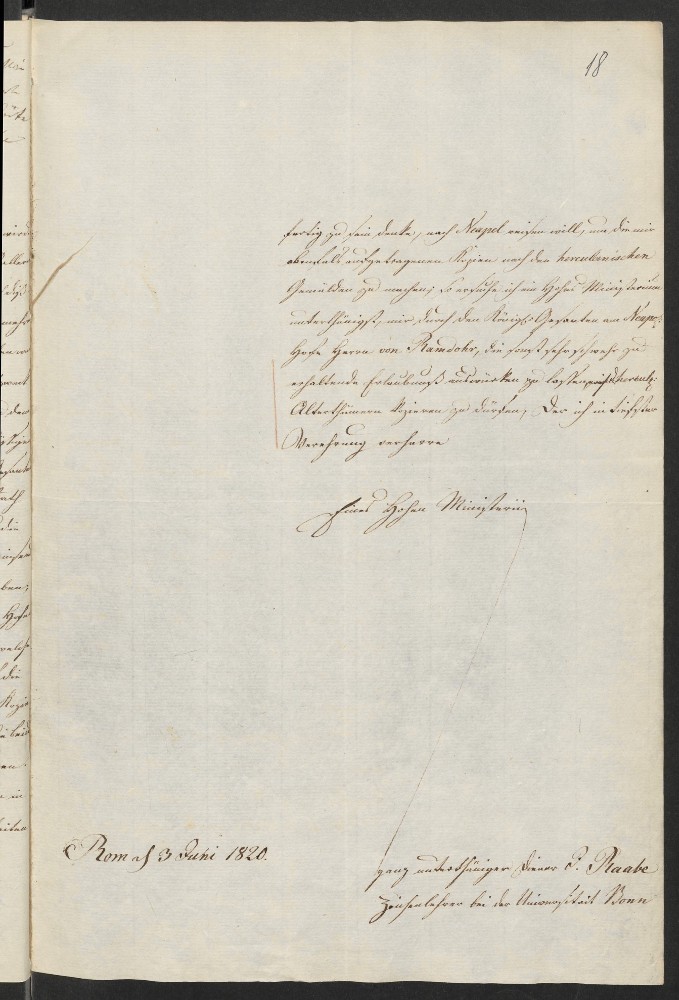 18
fertig zu sein denke, nach Neapel reisen will, um die mir
ebenfals aufgetragenen Kopien nach den herculanischen
Gemälden zu machen; so ersuche ich ein Hohes Ministerium
unterthänigst, mir durch den Königl. Gesanten am Neapo:
Hofe Herrn von Ramdohr, die sonst sehr schwehr zu
erhaltende Erlaubniß auswürken zu lassen, herculs:
Alterthümern kopieren zu dürfen, Der ich in tiefster
Verehrung verharre
Eines Hohen Ministerii
Rom d 3 Juni 1820.
ganz unterthäniger Diener J. Raabe
Zeichenlehrer bei der Universitait Bonn